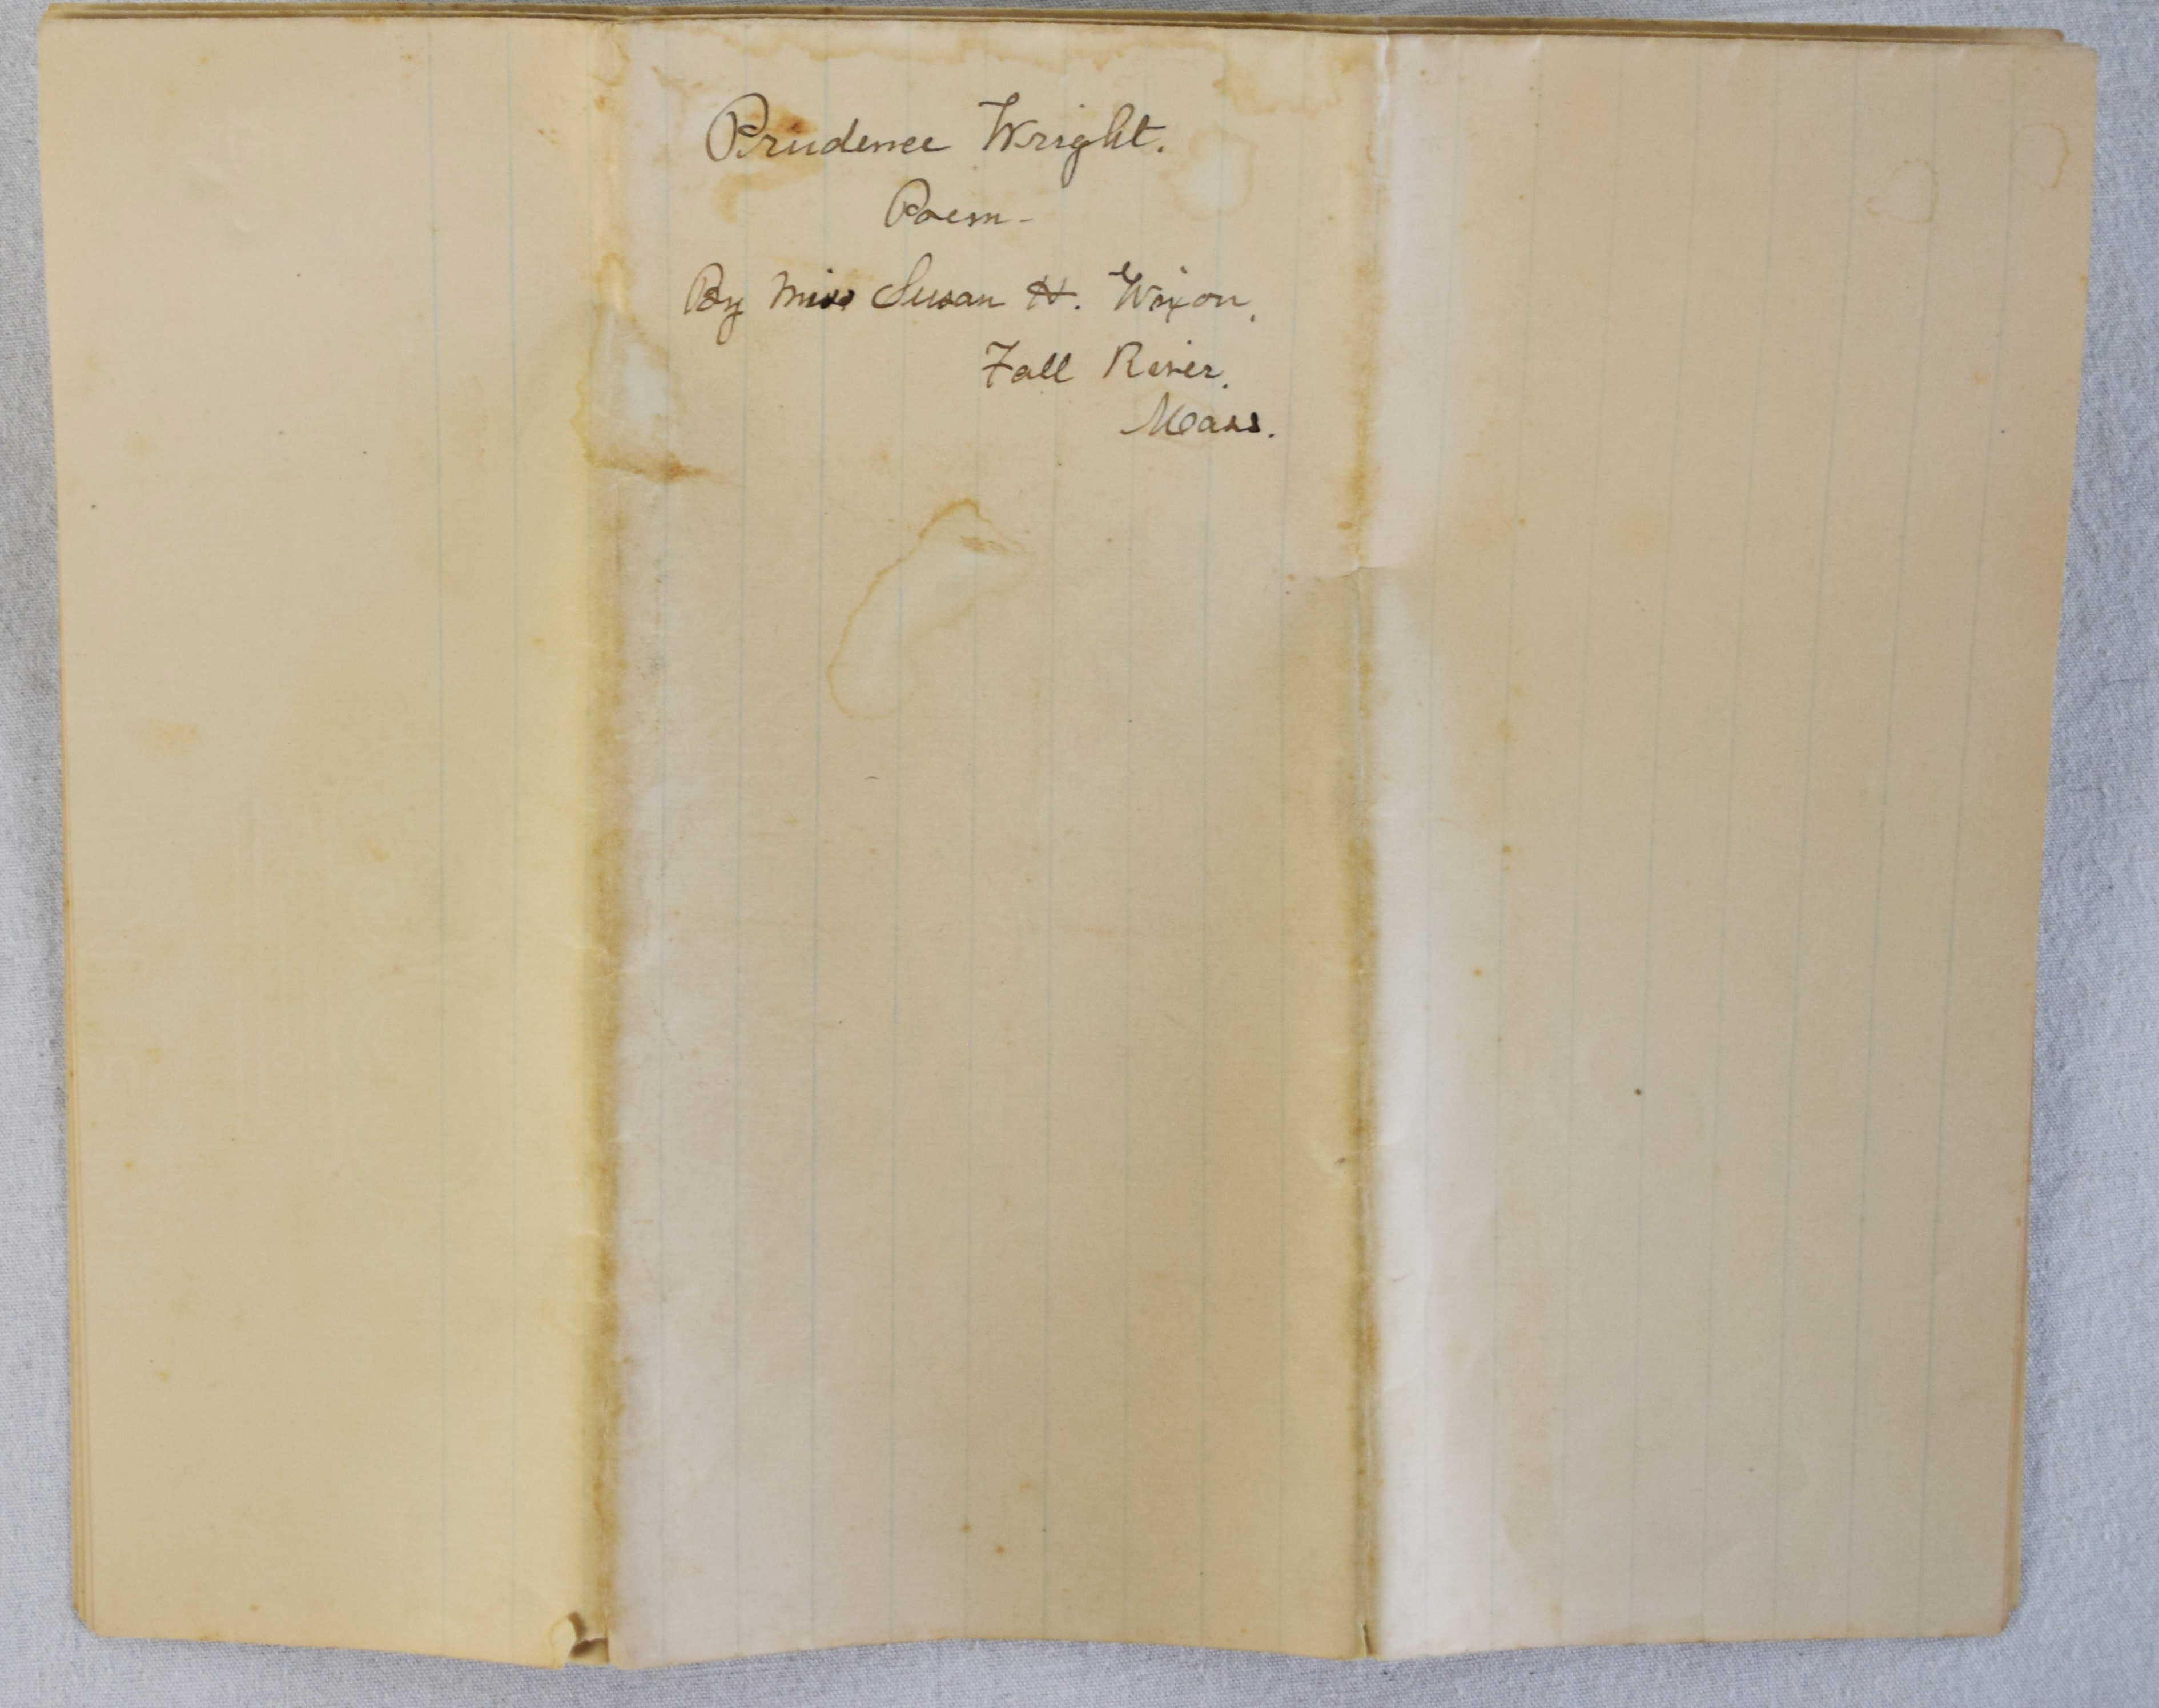 Prudence Wright.
Poem-
By Miss Susan H. Wixon,
Fall River,
Mass.